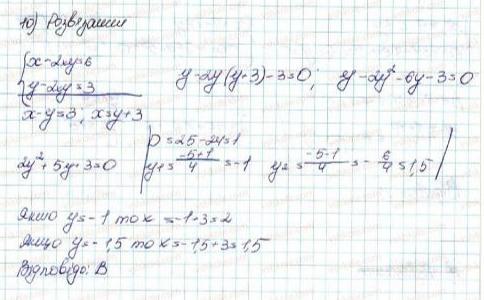 10) Розвязання
{x-2xy=6
y-2xy=3
y-2y(y+3)-3=0; y-2y²-6y-3=0
x-y=3; x=y+3
2y²+5y+3=0
D=25-24=1
y₁=(-5+1)/4=-1 y₂=(-5-1)/4=-6/4=1,5
Якшо y=-1 то x=-1+3=2
Якщо y=-1,5 то x=-1,5+3=1,5
Відповідь: В